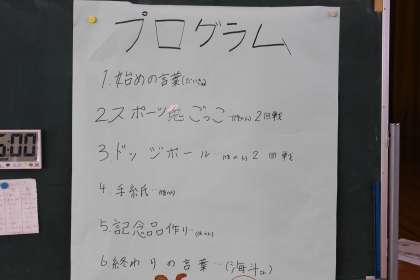 プログラム
1.始めの言葉
2 スポーツ恋ごっこ 2回戦
3 ドッジボール 2回戦
4 手紙
5.記念品作り
6 終わりの言葉…(海斗
:00